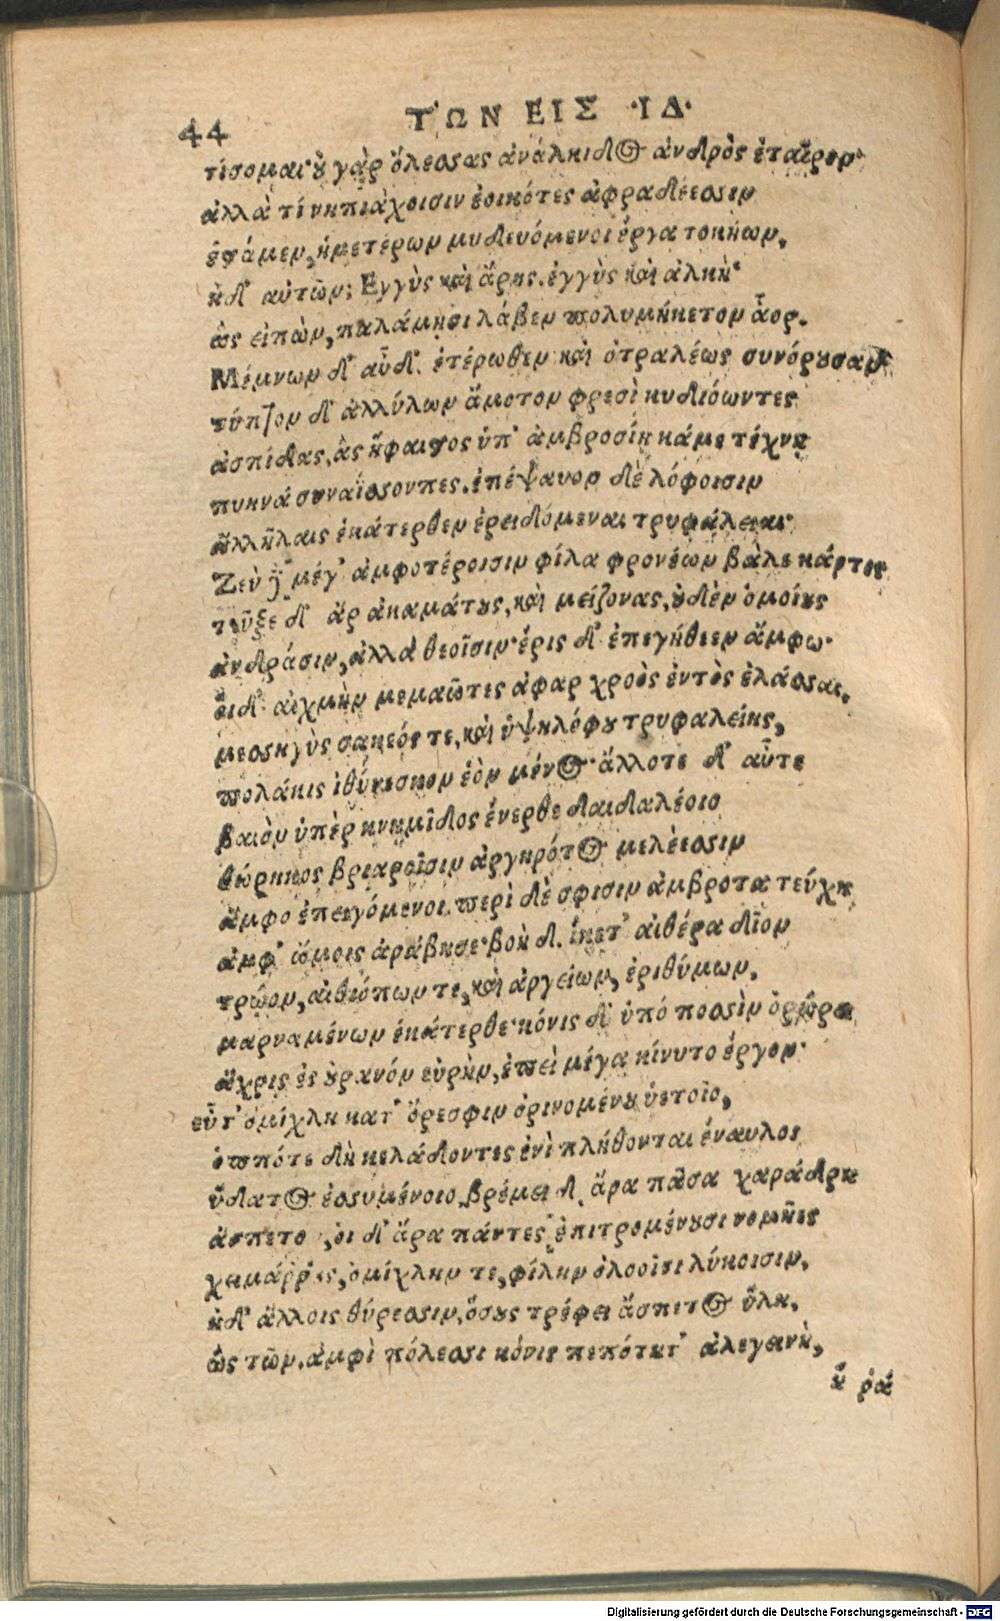 44
ΤΩΝ ΕΙΣ ·ΙΔ·
τίσομαι· οὐ γὰρ ὄλεσσας ἀνάλκιδος ἀνδρὸς ἑταῖρον·
ἀλλὰ τί νηπιάχοισιν ἐοικότες ἀφραδέεσσιν
ἕσταμεν, ἡμετέρων μυθευόμενοι ἔργα τοκήων,
ἠδ' αὐτῶν; Εγγὺς καὶ ἄρης. ἐγγὺς καὶ ἀλκὴ·
ὣς εἰπὼν, παλάμησι λάβεν πολυμήκετον ἆορ.
Μέμνων δ' αὖθ' ἑτέρωθεν καὶ ὀτραλέως συνόρουσαν
τύπτον δ' ἀλλύλων ἄμοτον φρεσὶ κυδιόωντες
ἀσπίδας, ἃς ἥφαιστος ὑπ' ἀμβροσίῃ κάμε τέχνῃ
πυκνὰ συναΐσσοντες. ἐπέψαυον δὲ λόφοισιν
ἀλλήλαις ἑκάτερθεν ἐρειδόμεναι τρυφάλειαι·
Ζεὺς δὲ μέγ' ἀμφοτέροισιν φίλα φρονέων βάλε κάρτος
τεῦξε δ' ἄρ ἀκαμάτους, καὶ μείζονας, οὐδὲν ὁμοίους
ἀνδράσιν, ἀλλὰ θεοῖσιν· ἔρις δ' ἐπεγήθεεν ἄμφω·
οἱ δ' αἰχμὴν μεμαῶτες ἄφαρ χροὸς ἐντὸς ἐλάσσαι,
μεσσηγὺς σακεός τε, καὶ ὑψηλόφου τρυφαλείης,
πολάκις ἰθύνεσκον ἑὸν μένος· ἄλλοτε δ' αὖτε
βαιὸν ὑπὲρ κνημῖδος ἔνερθε δαιδαλέοιο
θώρηκος βριαροῖσιν ἀρηρότος μελέεσσιν
ἄμφο ἐπειγόμενοι. περὶ δὲ σφισιν ἄμβροτα τεύχη
ἀμφ' ὤμοις ἀράβησε· βοὴ δ' ἵκετ' αἰθέρα δῖον
τρώων, αἰθιόπων τε, καὶ ἀργείων, ἐριθύμων,
μαρναμένων ἑκάτερθε· κόνις δ' ὑπό ποσσὶν ὀρώρει
ἄχρις ἐς οὐρανόν εὐρὴν, ἐπεὶ μέγα κίνυτο ἔργον·
εὖτ' ὀμίχλη κατ' ὄρεσφιν ὀρινομένου ὑετοῖο,
ὁππότε δὴ κελάδοντες ἐνὶ πλήθονται ἔναυλοι
ὕδατος ἐσσυμένοιο, βρέμει δ' ἄρα πᾶσα χαράδρη
ἄσπετο, οἱ δ' ἄρα πάντες ἐπιτρομένουσι νομῆες
χειμάρρες, ὀμίχλην τε, φίλην ὀλοοῖσι λύκοισιν,
ἠδ' ἄλλοις θύρεσσιν, ὅσους τρέφει ἄσπιτος ὕλη,
ὣς τῶν. ἀμφὶ πόλεσσι κόνις πεπότητ' ἀλεγεινὴ,
ἥ ῥά
Digitalisierung gefördert durch die Deutsche Forschungsgemeinschaft - DFG